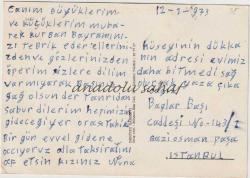 Canım Büyüklerim
ve Küçüklerim muba-
rek kurban Bayramını-
zı Tebrik eder ellerini-
zden ve gözlerinizden
öperim sizlere dilim
varmıyor
sağ olsun der Tanrıdan
Sabur dilerim hepimizin
gideceği yer orası Tabi
Bir gün evvel gidene
acıyoruz alla Taksiratını
ap etsin kızınız
12-1-973
Hüseyinin dükka-
nın adresi evimiz
daha bitmedi
Bağlar Başı
Caddesi No-143/1
Gaziosmanpaşa
İSTANBUL
anadolu sahaf